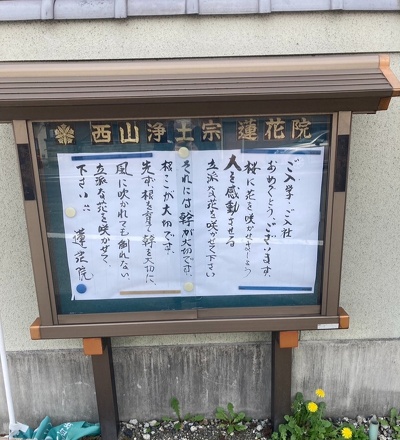 西山浄土宗 蓮花院
ご入学・ご入社
おめでとうございます。
桜に花を咲かせましょう
人を感動させる
立派な花を咲かせて下さい
それには幹が大切です、
根こが大切です。
先ず根を育て幹を大切に、
風に吹かれても倒れない、
立派な花を咲かせて、
下さい!!
蓮花院